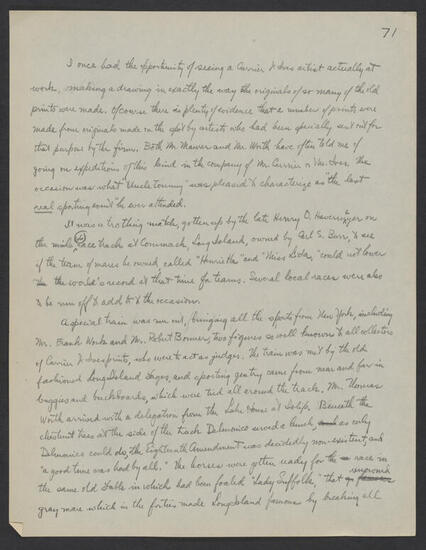 71
I once had the opportunity of seeing a Currier & Ives artist actually at
work, making a drawing in exactly the way the originals of so many of the old
prints were made. Of course there is plenty of evidence that a number of prints were
made from originals made on the spot by artists who had been specially sent out for
that purpose by the firm. Both Mr. Maurer and Mr. Worth have often told me of
going on expeditions of this kind in the company of Mr. Currier or Mr. Ives. The
occasion was what "Uncle Tommy" was pleased to characterize as "the last
real sporting event" he ever attended.
It was a trotting match, gotten up by the late Henry O. Havemeyer on
the mile race track at Commack Long Island, owned by Carl S. Burr, to see
if the team of mares he owned called "Henrietta" and "Miss Lida" could not lower
the world's record at that time for teams. Several local races were also
to be run off to add to the occasion.
A special train was run out, bringing all the sports from New York, including
Mr. Frank Work and Mr. Robert Bonner, two figures so well known to all collectors
of Currier & Ives prints, who were to act as judges. The train was met by the old
fashioned Long Island stages, and sporting gentry came from near and far in
buggies and buckboards, which were tied all around the track. Mr. Thomas
Worth arrived with a delegation from the Lake House at Islip. Beneath the
chestnut trees at the side of the track Delmonico served a lunch, as only
Delmonico could do, the Eighteenth Amendment was decidedly non-existent, and
"a good time was had by all." The horses were gotten ready for the race in
the same old stable in which had been foaled "Lady Suffolk," that
gray mare which in the forties made Long Island famous by breaking all